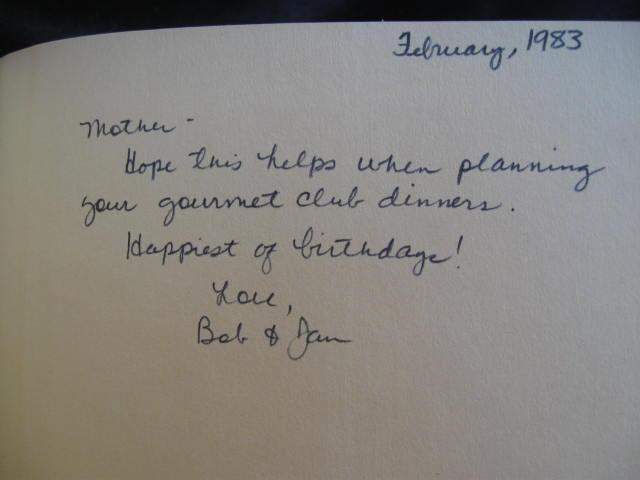 February, 1983
Mother -
Hope this helps when planning
your gourmet club dinners.
Happiest of birthdays!
Love,
Bob & Jan